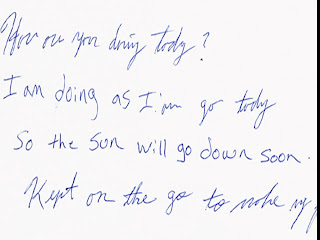 How are you doing today?
I am doing as I'm go today
So the Sun will go down soon.
Kept on the go to make my